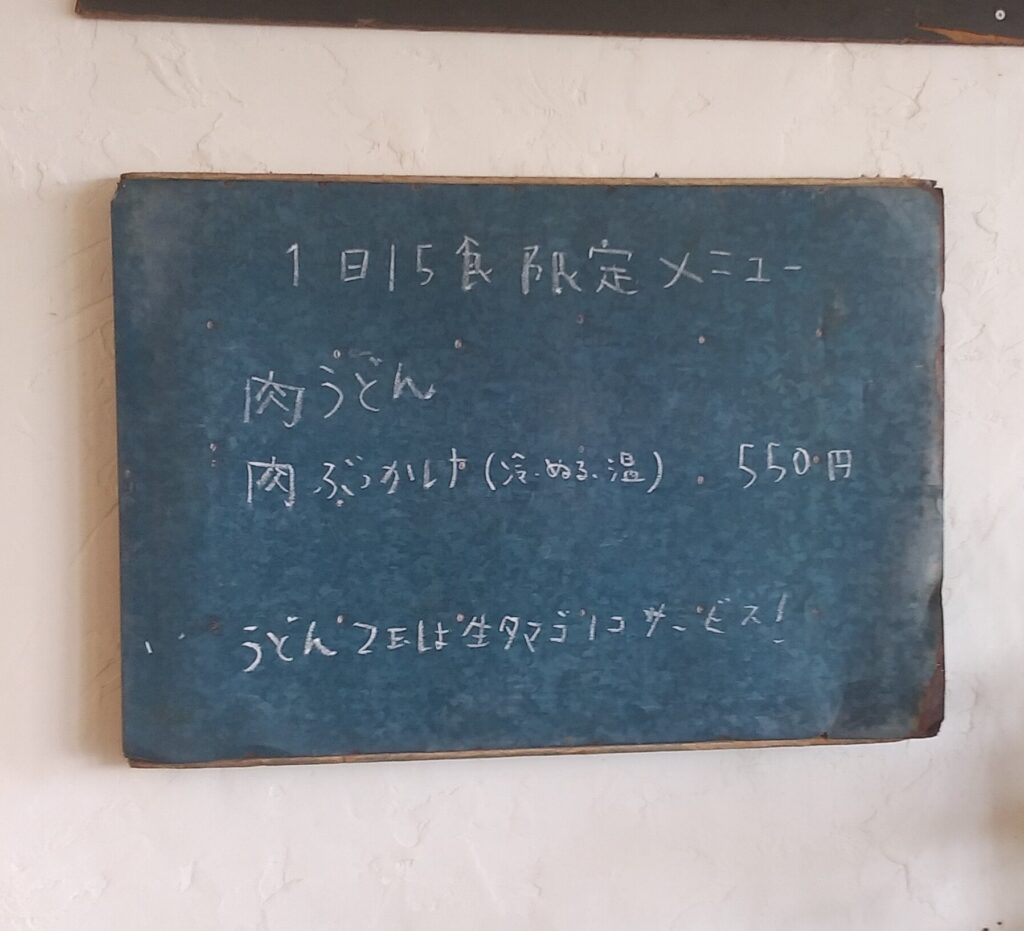 1日15食限定メニュー
肉うどん
肉ぶっかけ(冷・ぬる・温) 550円
うどん2玉は生タマゴ1コサービス!